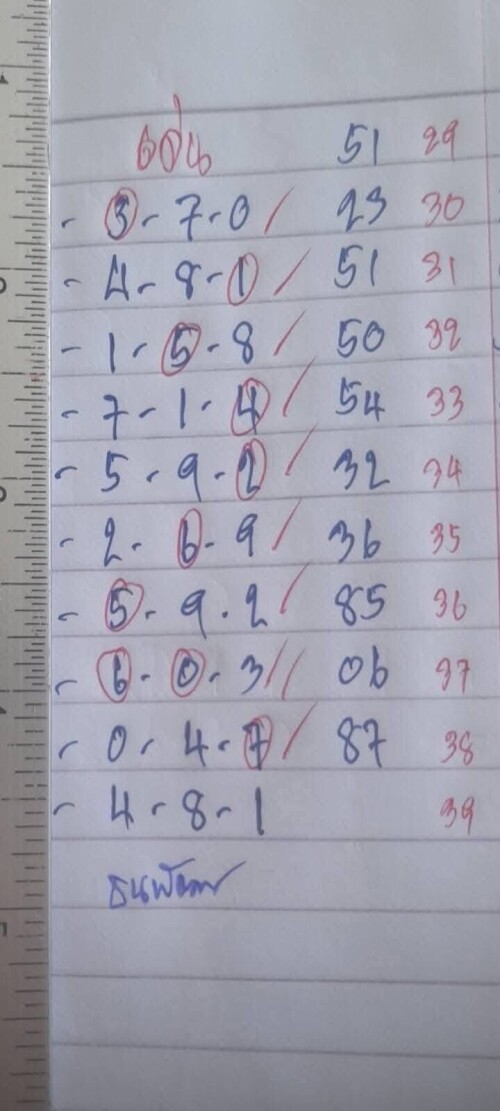 เด่น 51 29
- 3 - 7 - 0 / 23 30
- 4 - 8 - 1 / 51 31
- 1 - 5 - 8 / 50 32
- 7 - 1 - 4 / 54 33
- 5 - 9 - 2 / 32 34
- 2 - 6 - 9 / 36 35
- 5 - 9 - 2 / 85 36
- 6 - 0 - 3 // 06 37
- 0 - 4 - 7 / 87 38
- 4 - 8 - 1 39